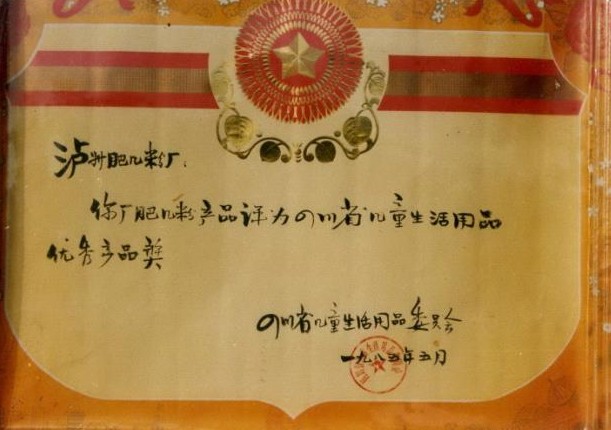 泸州肥儿粉厂:
你厂肥儿粉产品评为四川省儿童生活用品
优秀产品奖
四川省儿童生活用品委员会
一九八五年五月